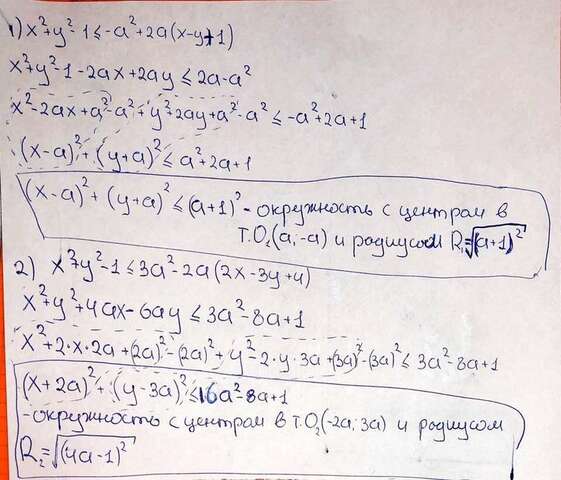 1) x²+y²-1≤-a²+2a(x-y+1)
x²+y²-1-2ax+2ay≤2a-a²
x²-2ax+a²-a²+y²+2ay+a²-a²≤-a²+2a+1
(x-a)²+(y+a)²≤a²+2a+1
(x-a)²+(y+a)²≤(a+1)² - окружность с центром в
т.O₁(a;-a) и радиусом R₁=√(a+1)²
2) x²+y²-1≤3a²-2a(2x-3y+4)
x²+y²+4ax-6ay≤3a²-8a+1
x²+2·x·2a+(2a)²-(2a)²+y²-2·y·3a+(3a)²-(3a)²≤3a²-8a+1
(x+2a)²+(y-3a)²≤16a²-8a+1
-окружность с центром в т.O₂(-2a;3a) и радиусом
R₂=√(4a-1)²